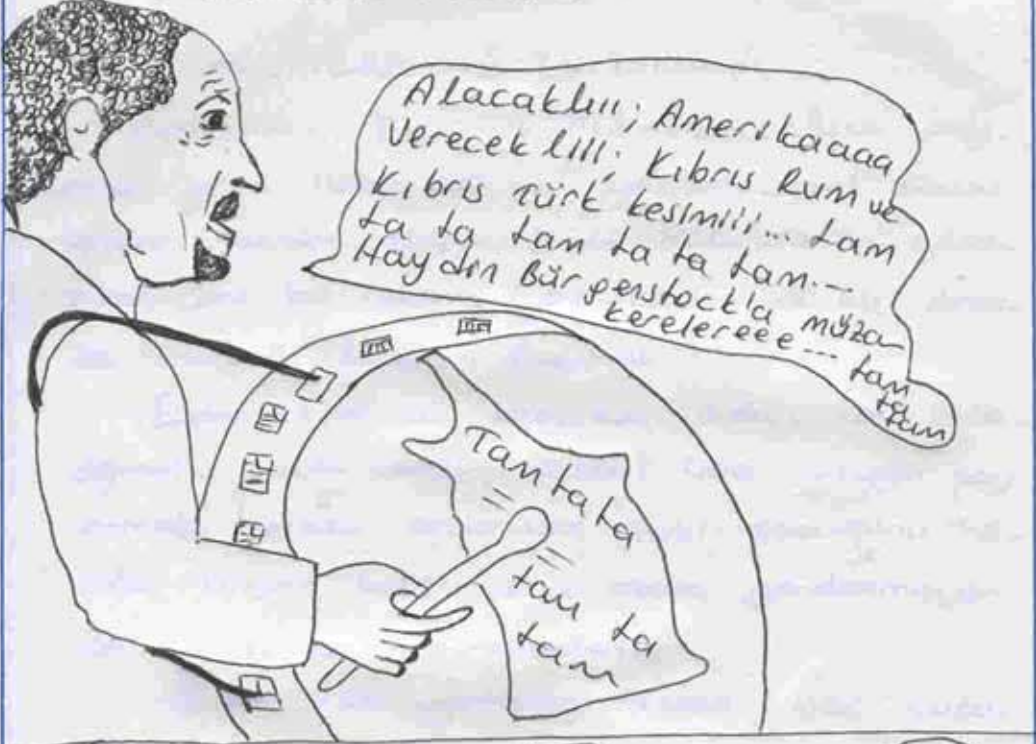 Alacaklııı; Amerikaaaa
Vereceklııı; Kıbrıs Rum ve
Kıbrıs Türk kesimiii... tam
ta ta tam ta ta tam...
Haydin Bürgenstock'a müza
kerelereee... tam
ta
tam
Tam ta ta
tam ta
tam